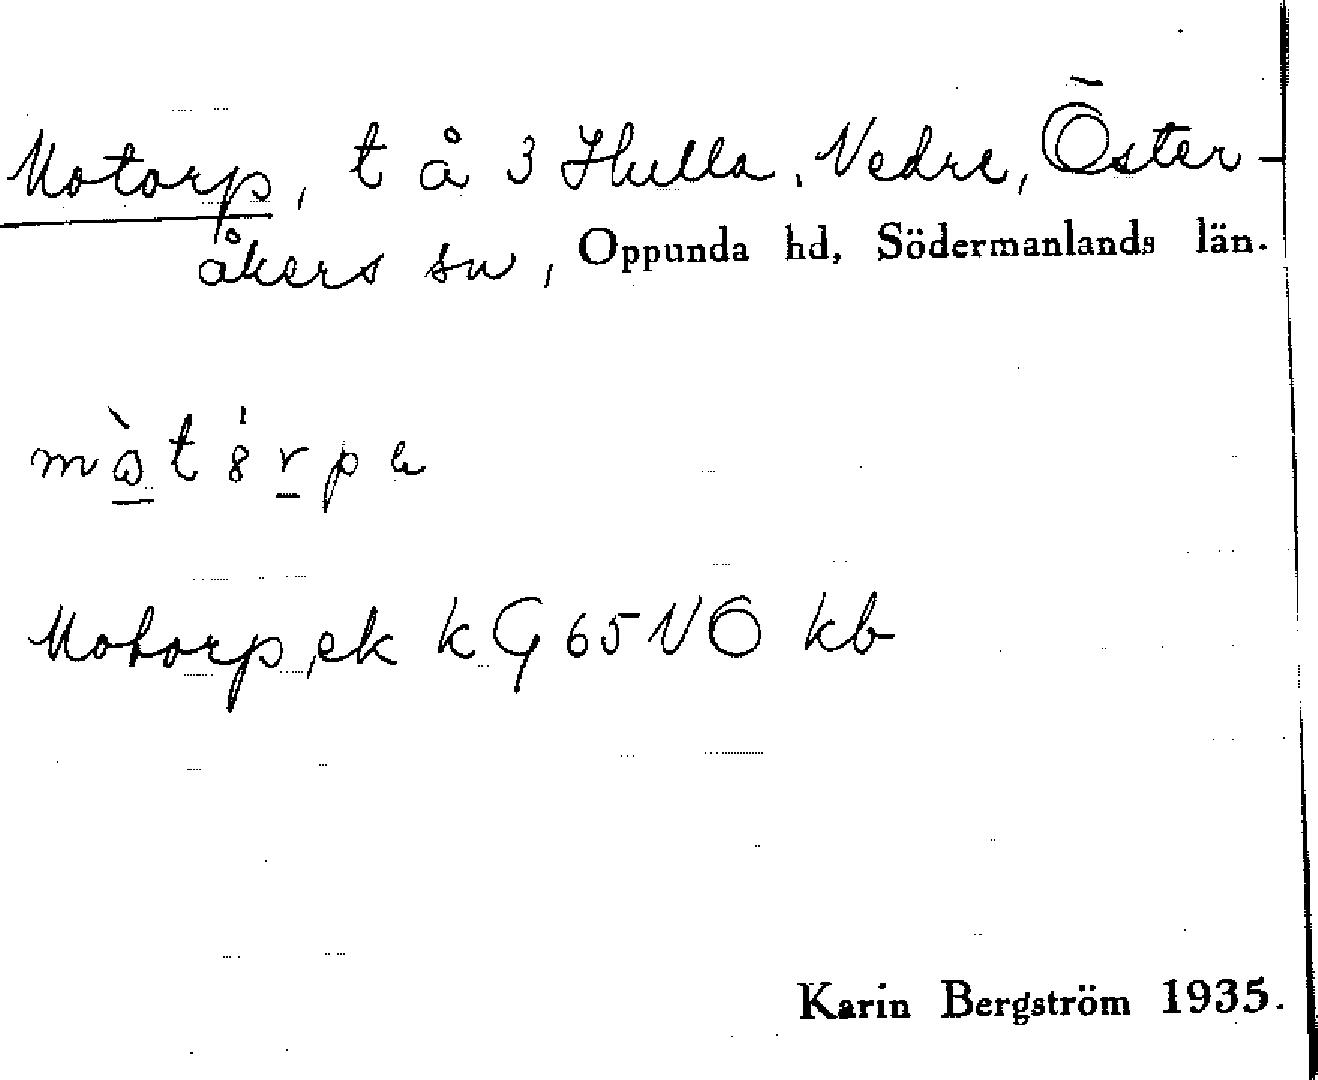 Motorp, t å 3 Hulla, Nedre, Öster-
åkers sn, Oppunda hd, Södermanlands län.
Motorp, ek k G 65 NÖ kb
Karin Bergström 1935.